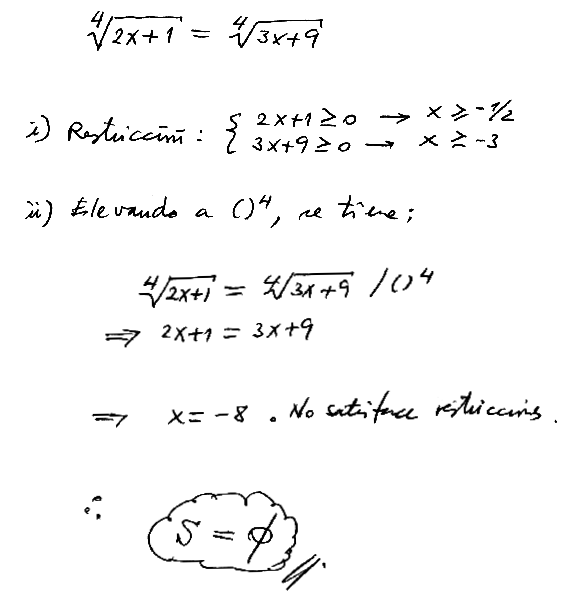 ⁴√(2x+1) = ⁴√(3x+9)
i) Restricción : { 2x+1 ≥ 0 → x ≥ -1/2
3x+9 ≥ 0 → x ≥ -3
ii) Elevando a ( )⁴, se tiene ;
⁴√(2x+1) = ⁴√(3x+9) / ( )⁴
⇒ 2x+1 = 3x+9
⇒ x = -8 . No satisface restricciones .
∴ S = ϕ